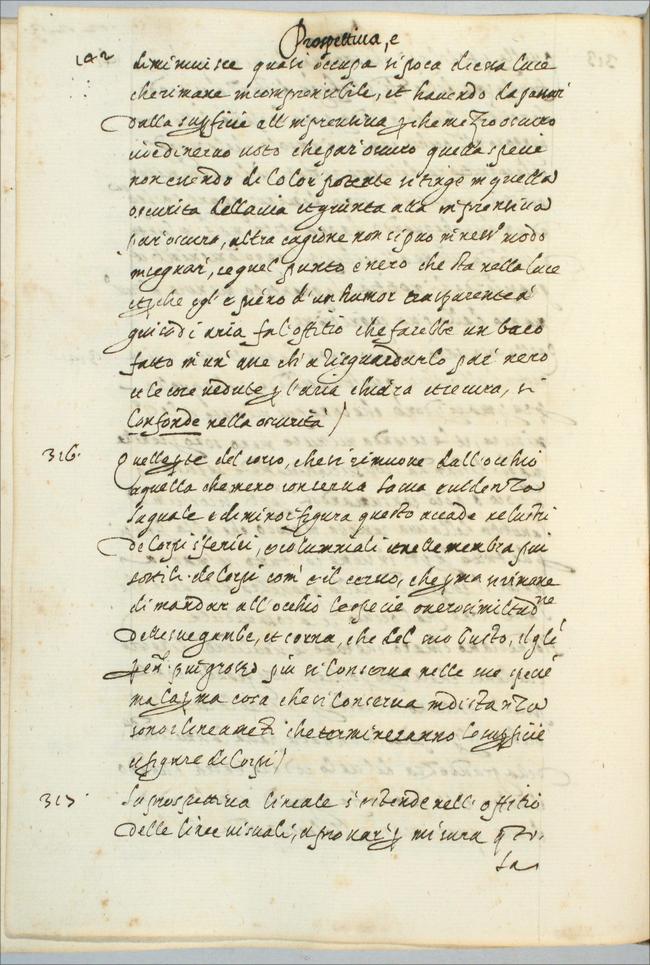 Prospettiua, e
142
diminuisce quasi occupa si poca di essa luce
che rimane incomprensibile, et hauendo da passar
dalla superfitie all'imprensiua p che mezzo oscuro
uuedi neruo uoto che par oscuro quella spetie
non essendo di color potente si tinge in quella
oscurita della uia et giunta alla imprensiua
par oscura, altra cagione non si puo in ness.o modo
insegnar, se quel punto e nero che sta nella luce
et p che egl'e pieno d'un humor trasparente a
guisa di aria fa l'offitio che farebbe un buco
fatto in un' asse che a risguardarlo par nero
et le cose uedute p l'aria chiara et scura, si
confonde nella oscurità /
316.
Quella p.te del corpo, che si rimuoue dall'occhio
aquella che meno conserua la sua euidenza
la quale e di minor figura questo accade ne lustri
de corpi sferici, o columnali et nelle membra piu
sottili de corpi com' è il ceruo, che p.ma si rimane
di mandar all'occhio le spetie ouero similitud.ne
delle sue gambe, et corna, che del suo busto, il qle
p esser piu grosso piu si conserua nelle sue spetie
ma la p.ma cosa che si conserua in distanza
sono i lineameti che termineranno le superfitie
et figure de corpi /
317.
La prospettiua lineale s'estende nell'offitio
delle linee uisuali, a prouar p misura qto.
la